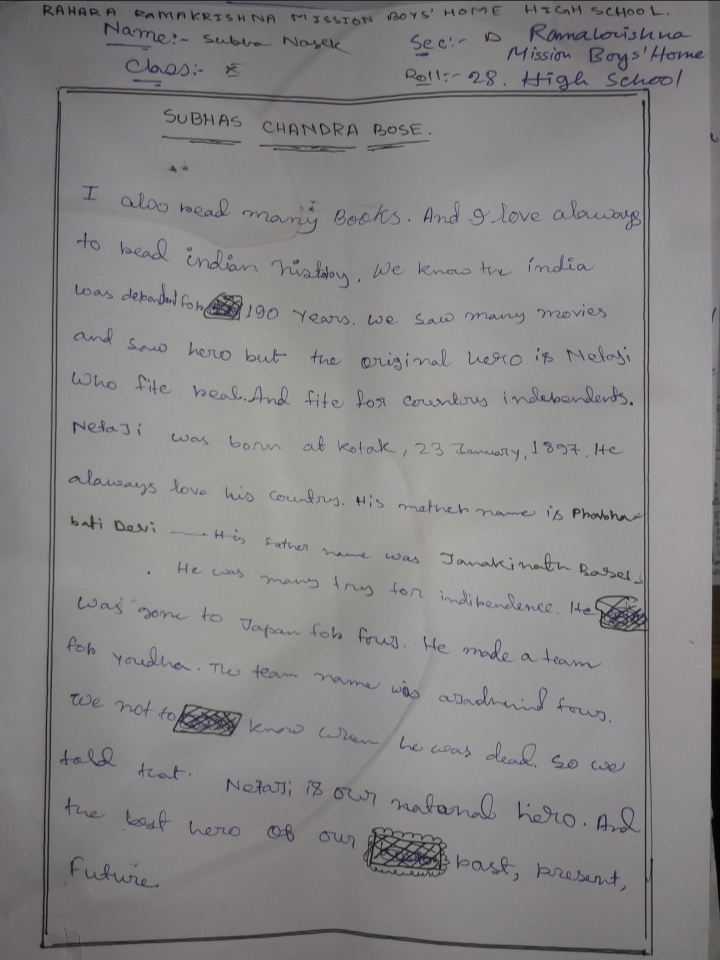 RAHARA RAMAKRISHNA MISSION BOYS' HOME HIGH SCHOOL.
Name:- Subha Nasek Sec:- D Ramakrishna
Mission Boys' Home
Class:- X Roll:- 28. High School
SUBHAS CHANDRA BOSE.
I also read many Books. And I love alaways
to read indian history. We know the india
was dependent for 190 Years. We saw many movies
and saw hero but the original hero is Netaji
Who fite real. And fite for country independents.
NetaJi was born at Kotak, 23 January, 1897. He
alaways love his country. His mother name is Prabha-
bati Devi — His father name was Janakinath
He was many try for indibendence. He
was gone to Japan for fous. He made a team
for youdha. The team name was fous.
We not to know when he was dead. So we
told that. NetaJi is our natanal hero. And
the best hero of our past, present,
Future.